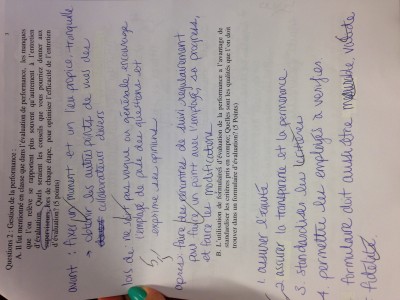 Questions 2 : Gestion de la performance
A. Il fut mentionné en classe que dans l'évaluation de performance, les manques
que l'on retrouve proviennent le plus souvent qu'autrement à l'entretien
d'évaluation. Quels seraient les conseils que vous pourriez donner aux
superviseurs, lors de chaque étape, pour optimiser l'efficacité de l'entretien
d'évaluation? (5 points)
avant : fixer un moment et un lieu propice, tranquille
obtenir les autres points de vues des
collaborateurs divers
lors de : ne pas varier en générale, encourage
l'employé de pose des questions et
exprime ses opinions
5/5
après : faire des rencontres de suivi régulièrement
pour faire un point avec l'employé, son progrès,
et faire les modifications
B. L'utilisation de formulaires d'évaluation de la performance a l'avantage de
standardiser les critères pris en compte. Quelles sont les qualités que l'on doit
trouver dans un formulaire d'évaluation? (5 Points)
1. assurer l'équité
2 assurer la transparence et la permanence
3 standardiser les critères
4. permettre les employés à vérifier
formulaire doit aussi être valide
fidélité